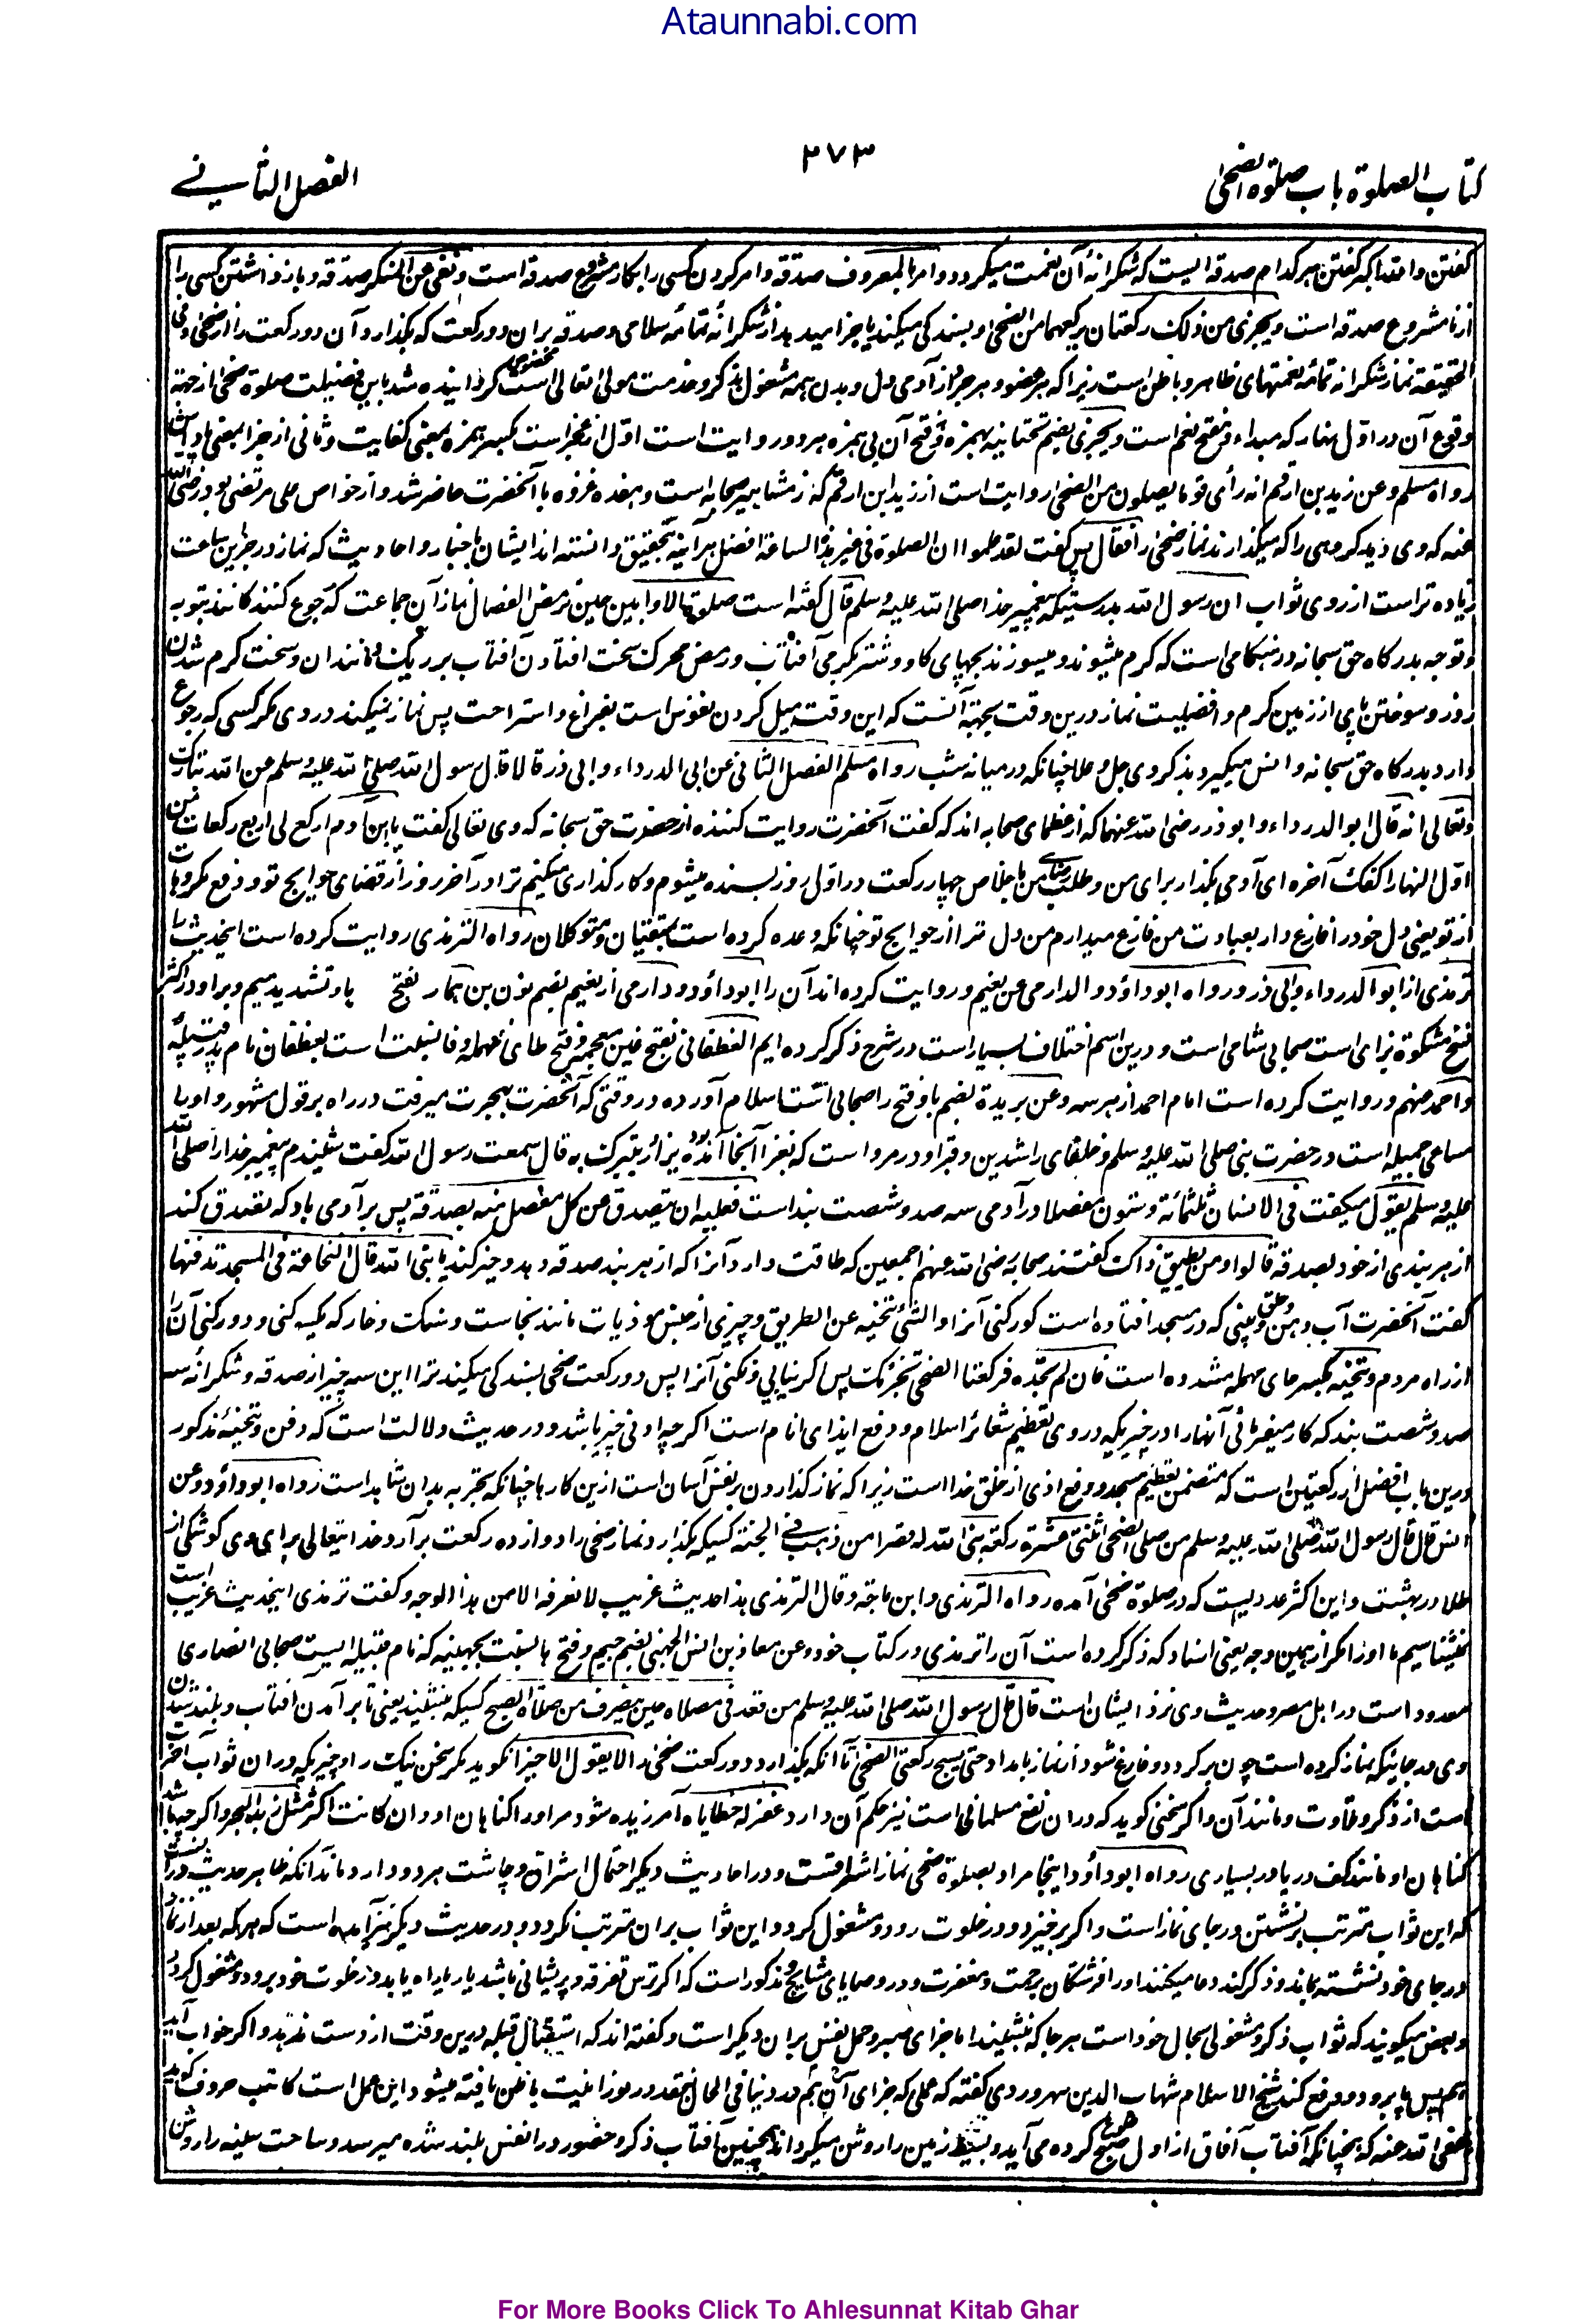 Ataunnabi.com
كتاب الصلوة باب صلوة الضحى
۲۷۳
الفصل الثاني
گفتن و امتداکبر گفتن هر کدام صدقه ایست که شکرانهٔ آن نعمت میگردد و امر بالمعروف صدقة و امر کردن کسی را بکار مشروع صدقه است و نهی عن المنکر صدقة و باز داشتن کسی را
از نا مشروع صدقه است ویجزی من ذلک رکعتان یرکعهما من الضحی و بسندگی میکند یا جزا میدهد از شکرانهٔ تمامهٔ سلامی و صدقه بران دو رکعت که بگذارد آن دو رکعت را از ضحی و فی
الحقیقة نماز شکرانه تمامه نعمتهای ظاهر و باطن است زیرا که هر عضو و هر جزا از آدمی دل و بدن همه مشغول بذکر و خدمت مولی تعالی است گردانیده شد باین فضیلت صلوة ضحی از جهة
وقوع آن در اول نهار که مبداء و مفتح نعم است ویجزی بضم تحتانیه بهمزه و فتح آن بی همزه هر دو روایت است اول از اجزاست بکسر همزه بمعنی کفایت و ثانی از جزا بمعنی پاداش
رواه مسلم وعن زید بن ارقم انه رأی قوما یصلون من الضحی روایت است از زید ابن ارقم که از مشاهیر صحابه است و هفده غزوه با آنحضرت حاضر شد و از خواص علی مرتضی بود رضی الله
عنه که وی دید گروهی را که میگذارند نماز ضحی را فقال پس گفت لقد علموا ان الصلوة فی غیر هذه الساعة افضل هرآینه بتحقیق دانسته اند ایشان باخبار و احادیث که نماز در جز این ساعت
زیاده تر است از روی ثواب ان رسول الله بدرستیکه پیغمبر خدا صلی الله علیه وسلم قال گفته است صلوة الاوابین حین ترمض الفصال نماز آن جماعت که رجوع کنند کانند بتوبه
و توجه بدرگاه حق سبحانه در هنگامی است که گرم میشوند و میسوزند بچهای گاو و شتر بگرمی آفتاب و رمض محرک سخت افتادن آفتاب بر ریگ و مانند ان و سخت گرم شدن
روز و سوختن پای از زمین گرم و افضلیت نماز درین وقت بجهة آنست که این وقت میل کردن نفوس است بفراغ و استراحت پس نماز نمیکند در وی مگر کسی که رجوع
دارد بدرگاه حق سبحانه و انس میگیرد بذکر وی جل و علا چنانکه در میانه شب رواه مسلم الفصل الثانی عن ابی الدرداء و ابی ذر قالا قال رسول الله صلی الله علیه وسلم عن الله تبارک
وتعالی انه قال ابوالدرداء و ابوذر رضی الله عنهما که از عظمای صحابه اند که گفت آنحضرت روایت کننده از حضرت حق سبحانه که وی تعالی گفت یا ابن آدم ارکع لی اربع رکعات من
اول النهار اکفک آخره ای آدمی بگذار برای من و طلب رضای من باخلاص چهار رکعت در اول روز بسنده میشوم و کارگذاری میکنم ترا در آخر روز از قضای حوایج تو و دفع مکروهات
از تو یعنی دل خود را فارغ دار بعبادت من فارغ میدارم من دل ترا از حوایج تو چنانکه وعده کرده است بمتقیان و متوکلان رواه الترمذی روایت کرده است اینحدیث را
ترمذی از ابوالدرداء و ابی ذر و رواه ابوداؤد و الدارمی عن نعیم و روایت کرده اند آن را ابوداؤد و دارمی از نعیم بضم نون بن همار بفتح ها و تشدید میم و برا و در اکثر
نسخ مشکوة بزای است صحابی شامی است و درین اسم اختلاف بسیار است در شرح ذکر کرده ایم الغطفانی بفتح غین معجمه و فتح طای مهمله و فا نسبت است بغطفان نام پدر قبیله
واحمد عنهم و روایت کرده است امام احمد از هر سه وعن بریدة بضم با و فتح را صحابی است اسلام آورده در وقتی که آنحضرت بهجرت میرفت در راه بر قول مشهور و او را
مساعی جمیله است در حضرت نبی صلی الله علیه وسلم و خلفای راشدین و قبر او در مرو است که بغزا آنجا آمده بود یزار یتبرک به قال سمعت رسول الله گفت شنیدم پیغمبر خدا را صلی الله
علیه وسلم یقول میگفت فی الانسان ثلثمائة وستون مفصلا در آدمی سه صد و شصت بند است فعلیه ان یتصدق عن کل مفصل منه بصدقة پس بر آدمی باد که تصدق کند
از هر بندی از خود بصدقه قالوا ومن یطیق ذلک گفتند صحابه رضی الله عنهم اجمعین که طاقت دارد آنرا که از هر بند صدقه دهد و چیز کند یا نبی الله قال النخاعة فی المسجد تدفنها
گفت آنحضرت آب دهن و حلق و بینی که در مسجد افتاده است گور کنی آنرا والشیٔ تنحیه عن الطریق و چیزی از جنس موذیات مانند نجاست و سنگ و خار که یکسو کنی و دور کنی آن را
از راه مردم و تنحیه بکسر حای مهمله مشدده است فان لم تجد فرکعتا الضحی تجزئک پس اگر نیابی و نکنی آنرا پس دو رکعت ضحی بسندگی میکند ترا این سه چیز از صدقه و شکرانه سه
صد و شصت بند که کار میفرمائی آنها را و چیزیکه در وی تعظیم شعائر اسلام و دفع ایذای انام است اگر چه ادنی چیز باشد و در حدیث دلالت است که دفن و تنحیهٔ مذکور
درین باب افضل از رکعتین است که متضمن تعظیم مسجد و دفع اذی از خلق خدا است زیرا که نماز گذاردن بر نفس آسان است ازین کارها چنانکه تجربه بدان شاهد است رواه ابوداؤد وعن
انس قال قال رسول الله صلی الله علیه وسلم من صلی الضحی اثنتی عشرة رکعة بنی الله له قصرا من ذهب فی الجنة کسیکه بگذارد نماز ضحی را دوازده رکعت برآرد خدایتعالی برای وی کوشکی از
طلا در بهشت و این اکثر عددیست که در صلوة ضحی آمده رواه الترمذی وابن ماجة وقال الترمذی هذا حدیث غریب لا نعرفه الا من هذا الوجه و گفت ترمذی اینحدیث غریب است
نمیشناسیم ما او را مگر از همین وجه یعنی اسناد که ذکر کرده است آن را ترمذی در کتاب خود وعن معاذ بن انس الجهنی بضم جیم و فتح ها نسبت بجهینه که نام قبیله ایست صحابی انصاری
معدود است در اهل مصر و حدیث وی نزد ایشان است قال قال رسول الله صلی الله علیه وسلم من قعد فی مصلاه حین ینصرف من صلوة الصبح کسیکه بنشیند یعنی تا برآمدن آفتاب و بلند شدن
وی در جائیکه نماز کرده است چون برگردد و فارغ شود از نماز بامداد حتی یسبح رکعتی الضحی تا آنکه بگذارد دو رکعت ضحی را لا یقول الا خیرا نگوید مگر سخن نیک را و چیزیکه در ان ثواب آخرت
است از ذکر و تلاوت و مانند آن و اگر سخنی گوید که دران نفع مسلمانی است نیز حکم آن دارد غفر له خطایاه آمرزیده شود مر او را گناهان او وان کانت اکثر من زبد البحر و اگر چه باشد
گناهان او مانند کف دریا در بسیاری رواه ابوداؤد اینجا مراد بصلوة ضحی نماز اشراقست و در احادیث دیگر احتمال اشراق و چاشت هر دو دارد ماندا آنکه ظاهر حدیث در آنست
که این ثواب مترتب بر نشستن در جای نماز است و اگر برخیزد و در خلوت رود و مشغول گردد این ثواب بران مترتب نگردد و در حدیث دیگر نیز آمده است که هر که بعد از نماز
در جای خود نشسته بماند و ذکر کند دعا میکنند او را فرشتگان برحمت و مغفرت و در وصایای مشایخ مذکور است که اگر ترس تفرقه و پریشانی باشد یا ریا راه یابد در خلوت خود برود و مشغول گردد
و بعض میگویند که ثواب ذکر و مشغولی بحال خود است هر جا که بنشیند اما جزای صبر و حمل نفس بران دیگر است و گفته اند که استقبال قبله درین وقت از دست ندهد و اگر خواب آید
هم پس پا برود و دفع کند شیخ الاسلام شهاب الدین سهروردی گفته که عملی که جزای آن هم در دنیا فی الحال بنقد در نورانیت باطن یافته میشود این عمل است کاتب حروف گوید
عفی الله عنه که همچنانکه آفتاب آفاق از اول صبح طلوع کرده می آید و بسیط زمین را روشن میگرداند همچنین آفتاب ذکر و حضور در انفس بلند شده میرسد و ساحت سینه را روشن
For More Books Click To Ahlesunnat Kitab Ghar